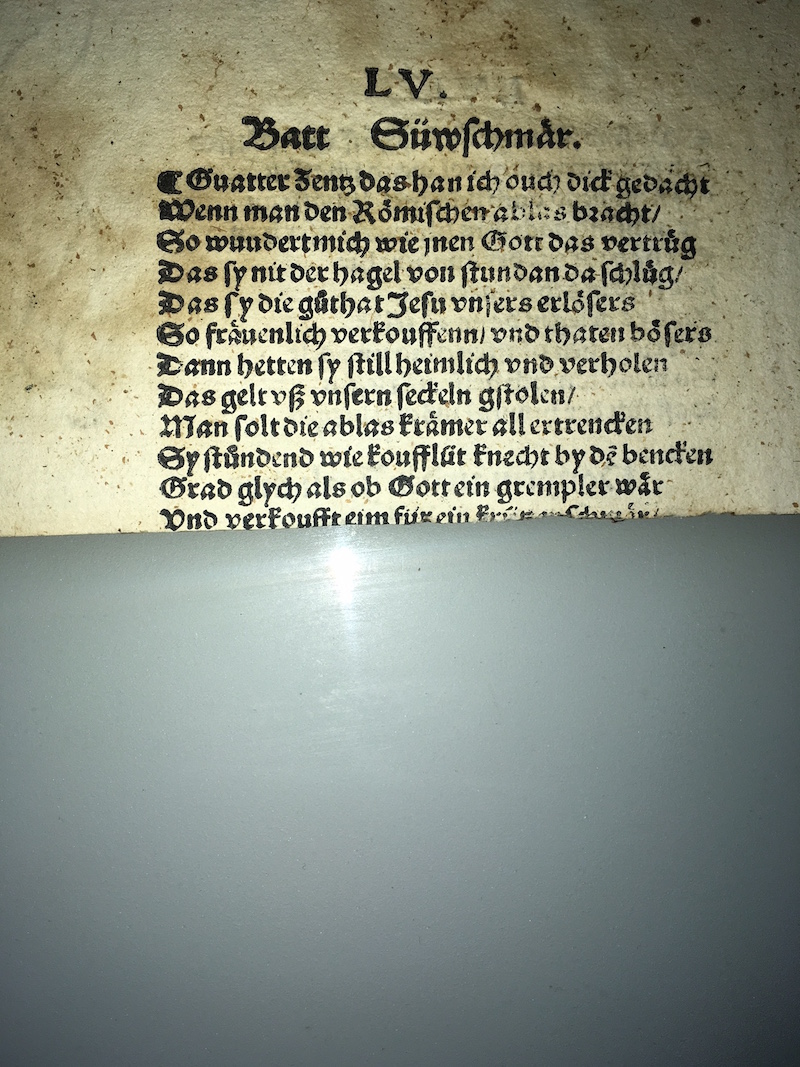 LV.
Batt Süwſchmår.
¶ Gvatter Zentz das han ich ouch dick gedacht
Wenn man den Römiſchen ablas bracht/
So wundert mich wie jnen Gott das vertrůg
Das ſy nit der hagel von ſtund an da ſchlůg/
Das ſy die gůthat Jeſu vnſers erlöſers
So fråuenlich verkoufftenn/ vnd thaten böſers
Dann hetten ſy ſtill heimlich vnd verholen
Das gelt vſz vnſern ſeckeln gſtolen/
Man ſolt die ablas kråmer all ertrencken
Sy ſtůndend wie koufflüt knecht by dē bencken
Grad glych als ob Gott ein grempler wår
Vnd verkoufft eim für ein